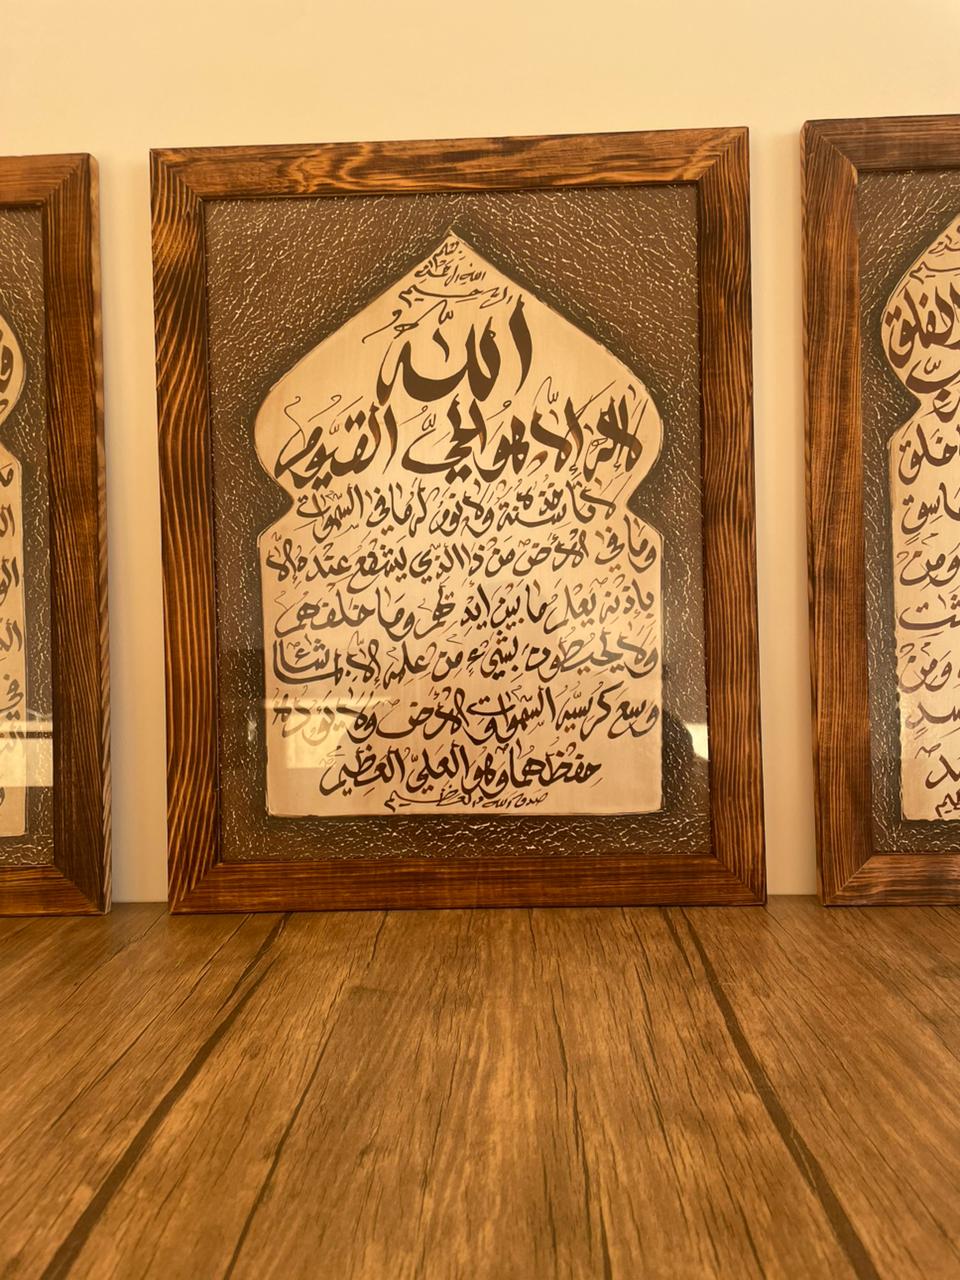 بسم
الله الرحمن
الرحيم
الله
لا إله إلا هو الحي القيوم
لا تأخذه سنة ولا نوم له ما في السموات
وما في الأرض من ذا الذي يشفع عنده إلا
بإذنه يعلم ما بين أيديهم وما خلفهم
ولا يحيطون بشيء من علمه إلا بما شاء
وسع كرسيه السموات والأرض ولا يؤده
حفظهما وهو العلي العظيم
صدق الله العظيم
الفلق
خلق
ومن
ومن